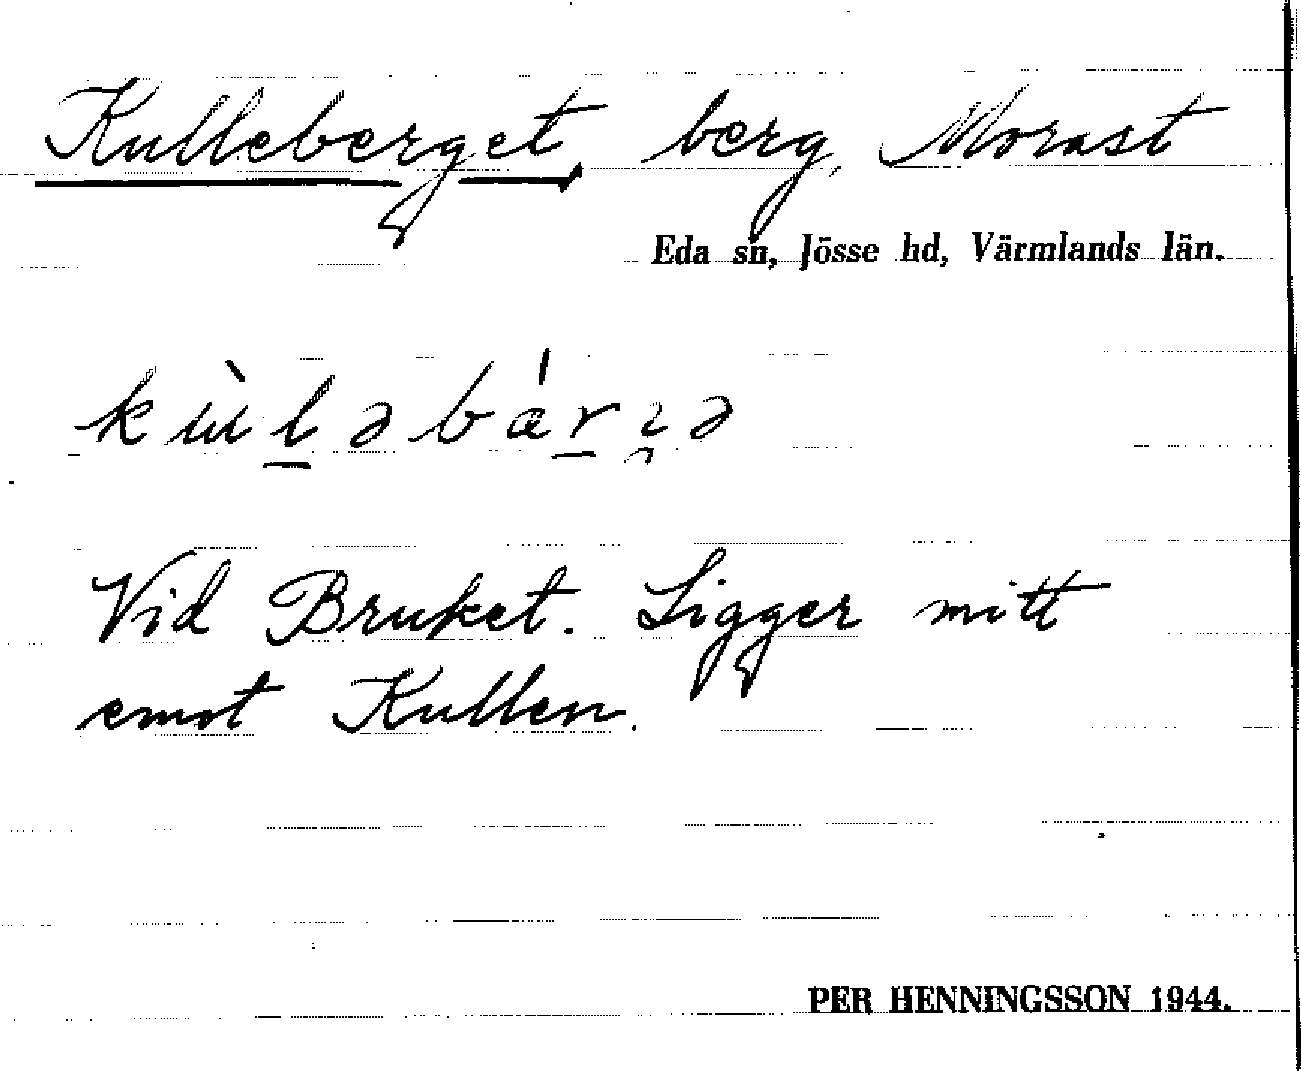 Kulleberget, berg, Morast
Eda sn, Jösse hd, Värmlands län.
Vid Bruket. Ligger mitt
emot Kullen.
PER HENNINGSSON 1944.